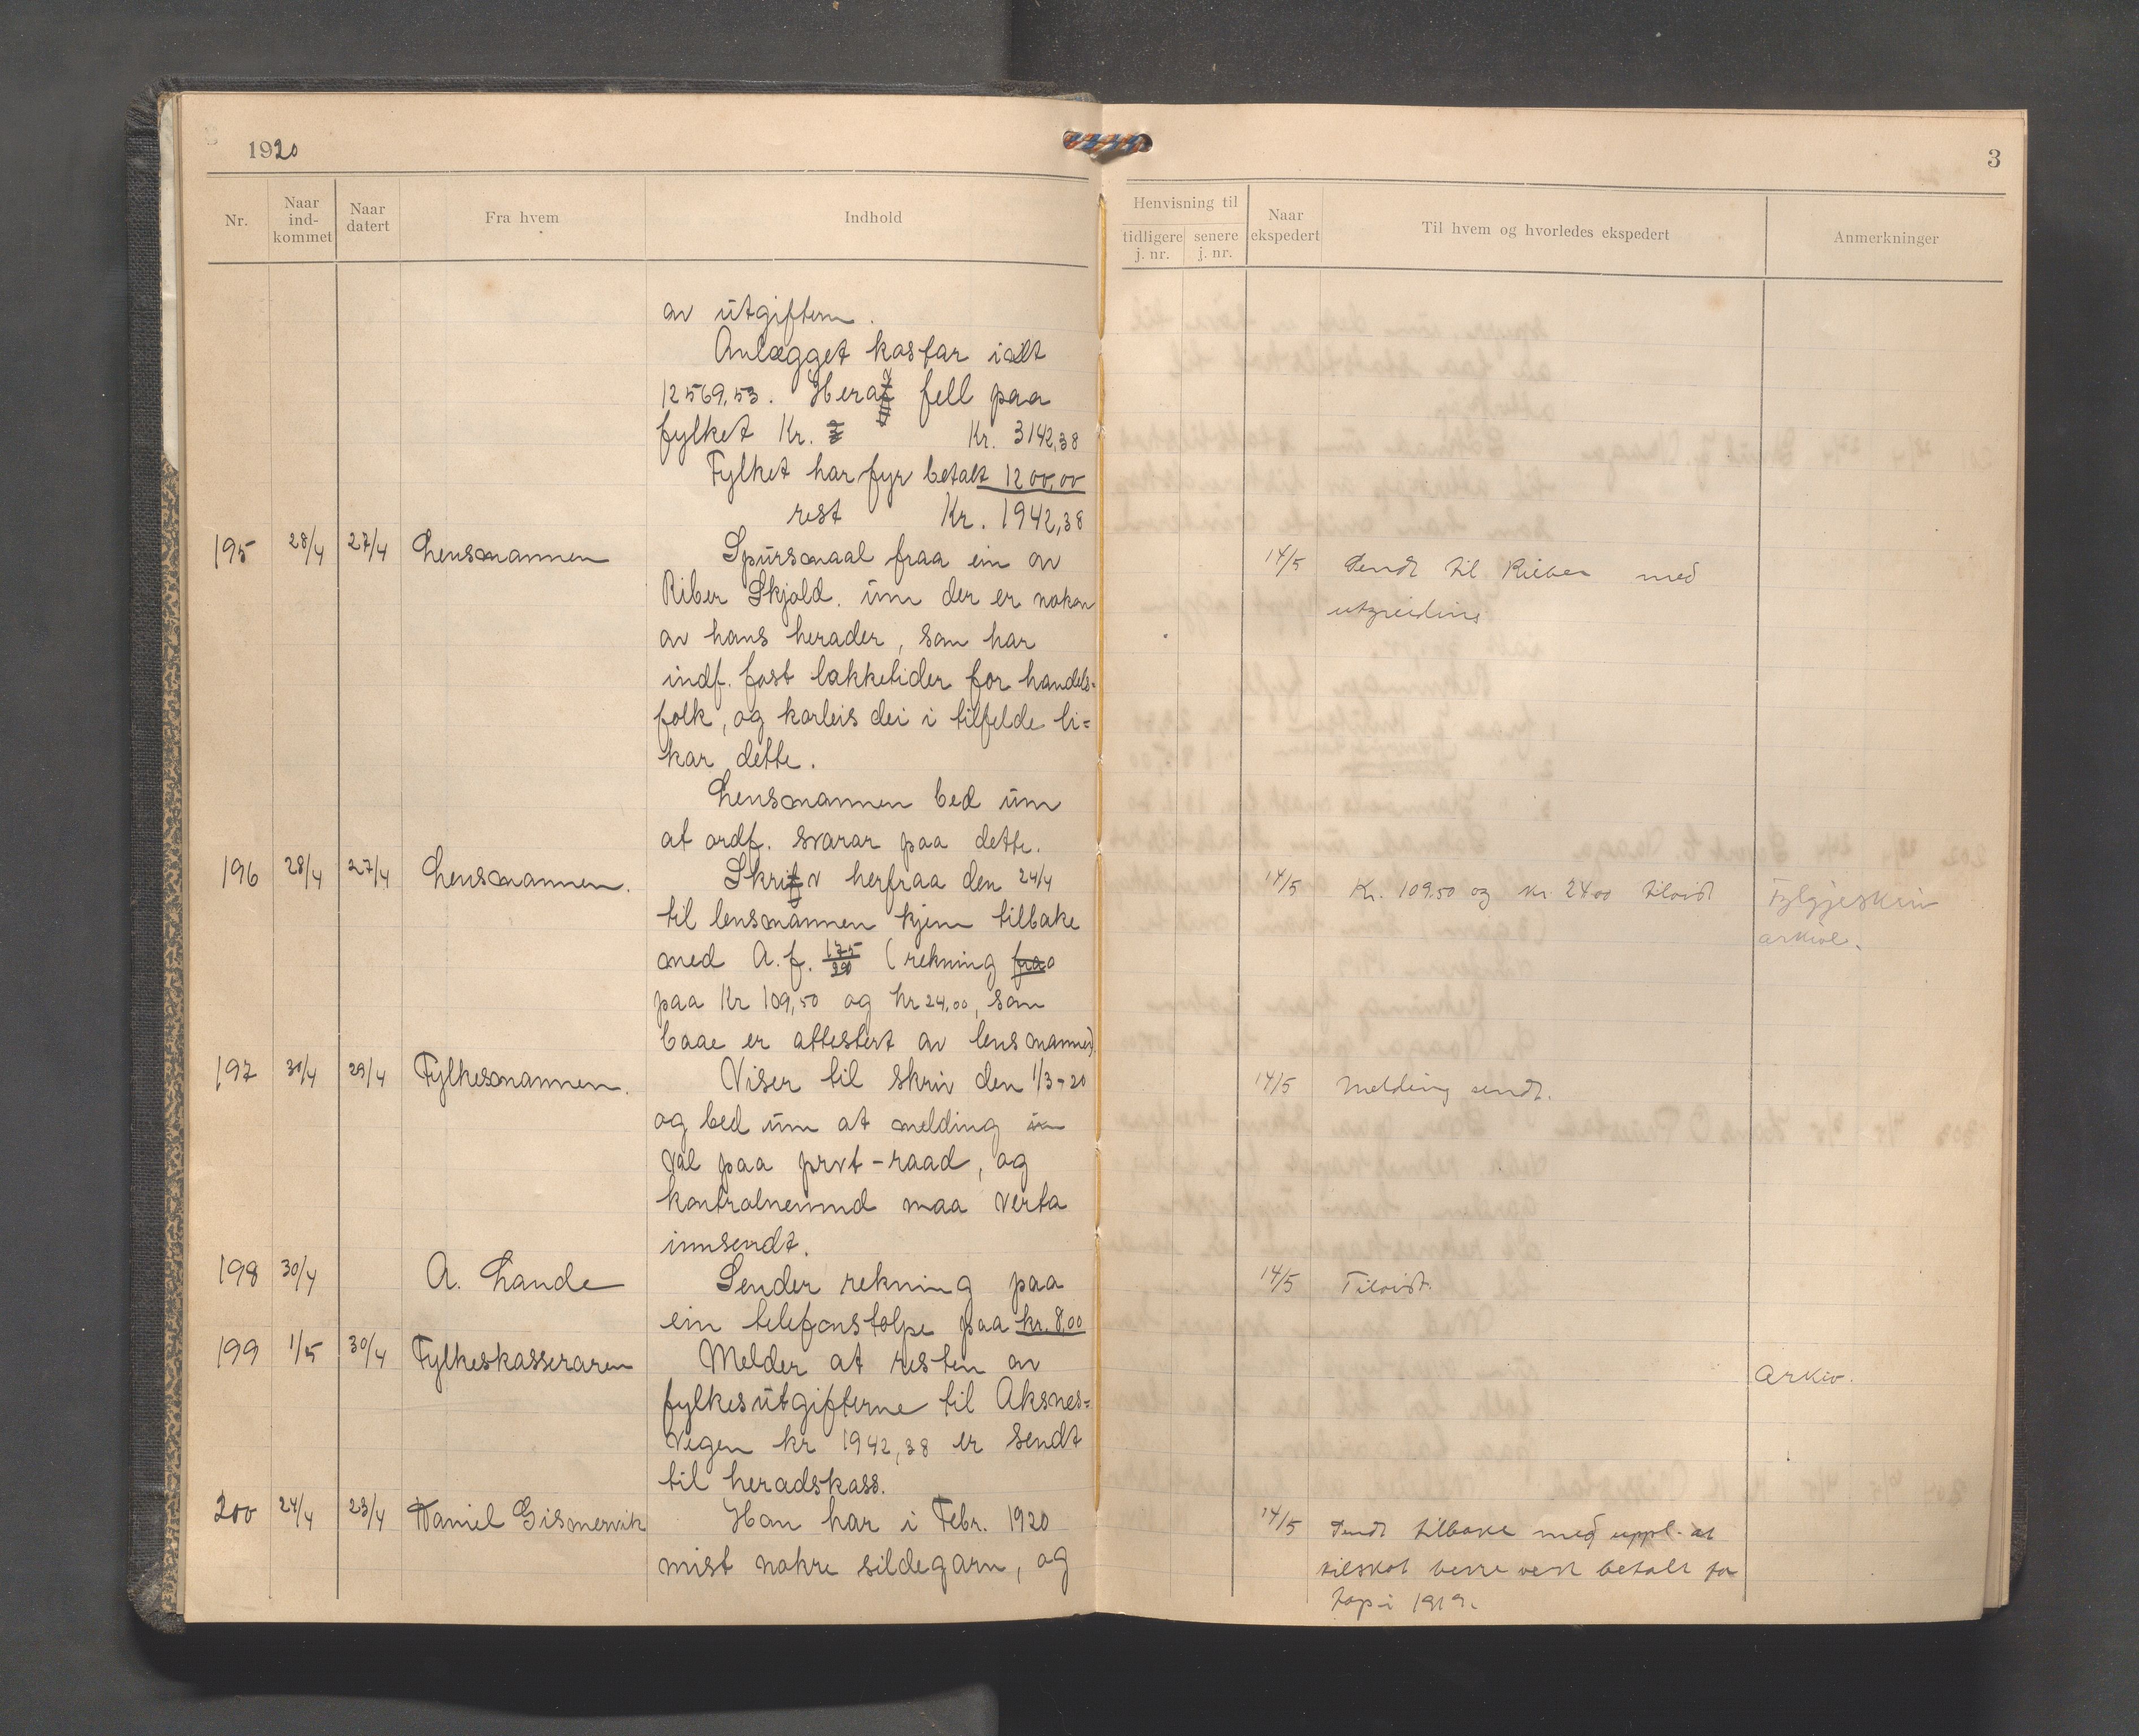 1920
3
Nr.
Naar ind-kommet
Naar datert
Fra hvem
Indhold
Henvisning til
tidligere j. nr.
senere j. nr.
Naar ekspedert
Til hvem og hvorledes ekspedert
Anmerkninger
av utgiftern.
Anlægget kostar ialt
12569,53. Herav fell paa
fylket Kr. Kr. 3142,38
Fylket har fyr betalt 1200,00
rest Kr. 1942,38
195 28/4 27/4 Lensmannen Spursmaal fraa ein av 14/5 Sendt til Rieber med
Riber Skjold. um der er nokon utgreiding
av hans herader, som har
indf. fast lukketider for handels-
folk, og korleis dei i tilfelde li-
kar dette.
Lensmannen bed um
at ordf. svarar paa dette.
196 28/4 27/4 Lensmannen. Skriv herfraa den 24/4 14/5 Kr. 109.50 og kr. 24.00 tilvist Fylgjeskriv
til lensmannen kjem tilbake arkivl.
med A. f. 175/20 (rekning fraa
paa Kr 109,50 og kr 24,00, som
baae er attestert av lensmannen)
197 30/4 29/4 Fylkesmannen. Viser til skriv den 1/3-20 14/5 Melding sendt.
og bed um at melding um
val paa prvt-raad, og
kontrolnemnd maa verta
innsendt.
198 30/4 A. Lande Sender rekning paa 14/5 Tilvist.
ein telefonstolpe paa kr. 8,00
199 1/5 30/4 Fylkeskasseraren Melder at resten av Arkiv.
fylkesutgifterne til Aksnes-
vegen kr 1942,38 er sendt
til heradskass.
200 24/4 23/4 Daniel Gismervik Han har i Febr. 1920 14/5 Sendt tilbake med uppl. at
mist nokre sildegarn, og tilskot berre vert betalt for
tap i 1919.